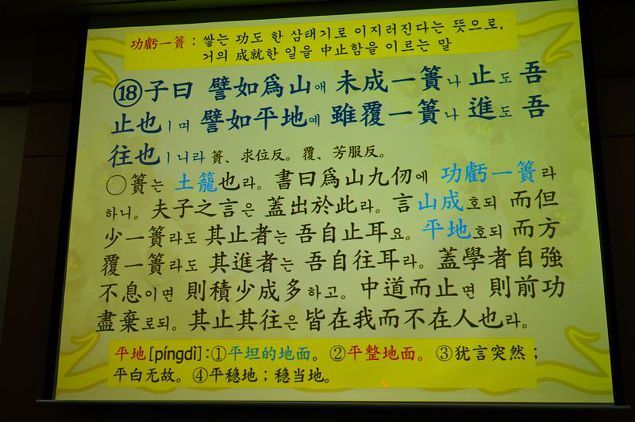 功虧一簣 : 쌓는 功도 한 삼태기로 이지러진다는 뜻으로,
거의 成就한 일을 中止함을 이르는 말
⑱子曰 譬如爲山애 未成一簣나 止도 吾
止也ㅣ며 譬如平地에 雖覆一簣나 進도 吾
往也ㅣ니라 簣、求位反。覆、芳服反。
○簣는 土籠也라。書曰爲山九仞에 功虧一簣라
하니。夫子之言은 蓋出於此라。言山成호되 而但
少一簣라도 其止者는 吾自止耳요。平地호되 而方
覆一簣라도 其進者는 吾自往耳라。蓋學者自強
不息이면 則積少成多하고。中道而止면 則前功
盡棄로되。其止其往은 皆在我而不在人也라。
平地[píngdì]:①平坦的地面。②平整地面。③犹言突然；
平白无故。④平穩地；穩当地。